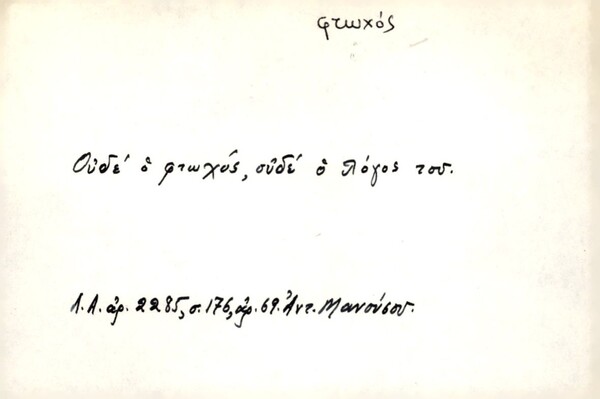 φτωχός
Οὐδέ ὁ φτωχός, οὐδέ ὁ λόγος του.
Λ.Α. ἀρ. 2285, σ. 176, ἀρ. 69. Ἀντ. Μανούσου.